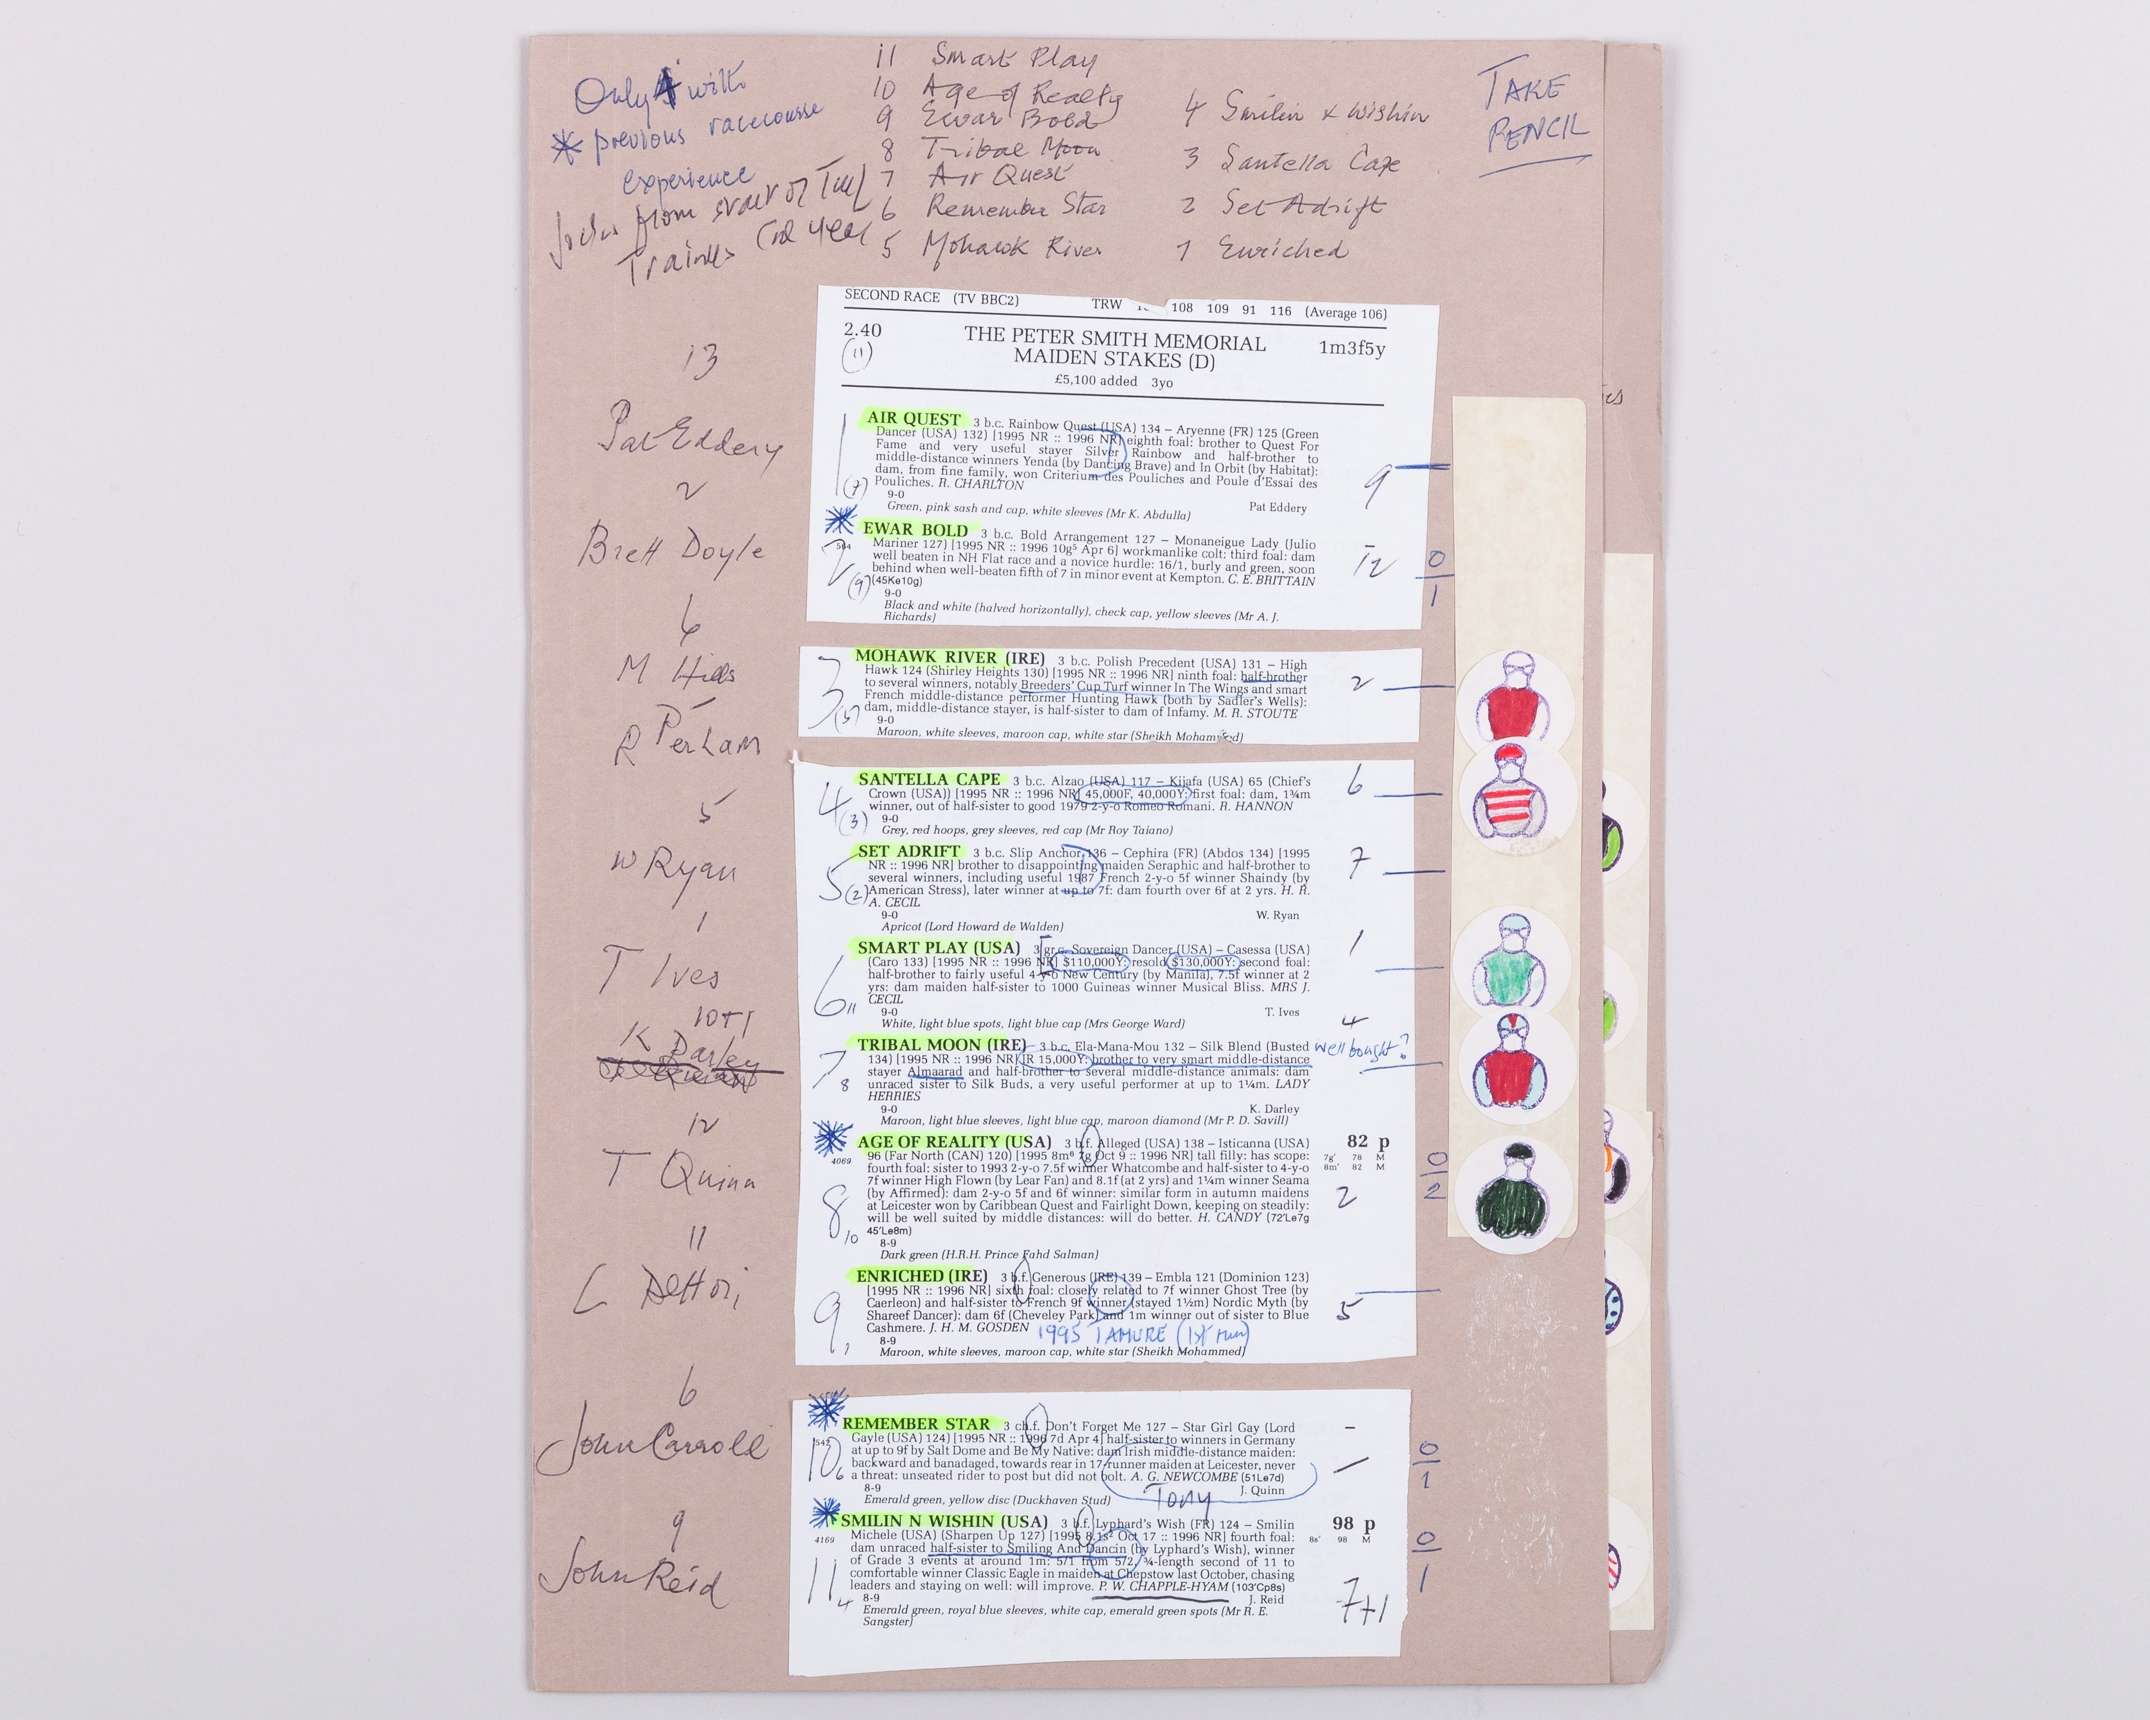 11 Smart Play
10 Age of Realty
9 Ewar Bold
8 Tribal Moon
7 Air Quest
6 Remember Star
5 Mohawk River
4 Smilin & Wishin
3 Santella Cape
2 Set Adrift
1 Enriched
TAKE
PENCIL
Only 4 with
* previous racecourse
experience
from start of Turf
Trainers Cal year
SECOND RACE (TV BBC2) TRW 108 109 91 116 (Average 106)
2.40 THE PETER SMITH MEMORIAL 1m3f5y
(11) MAIDEN STAKES (D)
£5,100 added 3yo
13
Pat Eddery
2
Brett Doyle
6
M Hills
R Perham
5
W Ryan
1
T Ives
10+1
K Darley
12
T Quinn
11
L Dettori
6
John Carroll
9
John Reid
1
(7)
AIR QUEST 3 b.c. Rainbow Quest (USA) 134 – Aryenne (FR) 125 (Green
Dancer (USA) 132) [1995 NR :: 1996 NR] eighth foal: brother to Quest For
Fame and very useful stayer Silver Rainbow and half-brother to
middle-distance winners Yenda (by Dancing Brave) and In Orbit (by Habitat):
dam, from fine family, won Criterium des Pouliches and Poule d'Essai des
Pouliches. R. CHARLTON
9-0
Green, pink sash and cap, white sleeves (Mr K. Abdulla) Pat Eddery
9
*
564
2
(9)
EWAR BOLD 3 b.c. Bold Arrangement 127 – Monaneigue Lady (Julio
Mariner 127) [1995 NR :: 1996 10g⁵ Apr 6] workmanlike colt: third foal: dam
well beaten in NH Flat race and a novice hurdle: 16/1, burly and green, soon
behind when well-beaten fifth of 7 in minor event at Kempton. C. E. BRITTAIN
(45Ke10g)
9-0
Black and white (halved horizontally), check cap, yellow sleeves (Mr A. J.
Richards)
12
0/1
3
(5)
MOHAWK RIVER (IRE) 3 b.c. Polish Precedent (USA) 131 – High
Hawk 124 (Shirley Heights 130) [1995 NR :: 1996 NR] ninth foal: half-brother
to several winners, notably Breeders' Cup Turf winner In The Wings and smart
French middle-distance performer Hunting Hawk (both by Sadler's Wells):
dam, middle-distance stayer, is half-sister to dam of Infamy. M. R. STOUTE
9-0
Maroon, white sleeves, maroon cap, white star (Sheikh Mohammed)
2
4
(3)
SANTELLA CAPE 3 b.c. Alzao (USA) 117 – Kijafa (USA) 65 (Chief's
Crown (USA)) [1995 NR :: 1996 NR] 45,000F, 40,000Y: first foal: dam, 1¾m
winner, out of half-sister to good 1979 2-y-o Romeo Romani. R. HANNON
9-0
Grey, red hoops, grey sleeves, red cap (Mr Roy Taiano)
6
5
(2)
SET ADRIFT 3 b.c. Slip Anchor 136 – Cephira (FR) (Abdos 134) [1995
NR :: 1996 NR] brother to disappointing maiden Seraphic and half-brother to
several winners, including useful 1987 French 2-y-o 5f winner Shaindy (by
American Stress), later winner at up to 7f: dam fourth over 6f at 2 yrs. H. R.
A. CECIL
9-0 W. Ryan
Apricot (Lord Howard de Walden)
7
6
11
SMART PLAY (USA) 3 gr.c. Sovereign Dancer (USA) – Casessa (USA)
(Caro 133) [1995 NR :: 1996 NR] $110,000Y: resold $130,000Y: second foal:
half-brother to fairly useful 4-y-o New Century (by Manila), 7.5f winner at 2
yrs: dam maiden half-sister to 1000 Guineas winner Musical Bliss. MRS J.
CECIL
9-0 T. Ives
White, light blue spots, light blue cap (Mrs George Ward)
1
7
8
TRIBAL MOON (IRE) 3 b.c. Ela-Mana-Mou 132 – Silk Blend (Busted
134) [1995 NR :: 1996 NR] IR 15,000Y: brother to very smart middle-distance
stayer Almaarad and half-brother to several middle-distance animals: dam
unraced sister to Silk Buds, a very useful performer at up to 1¼m. LADY
HERRIES
9-0 K. Darley
Maroon, light blue sleeves, light blue cap, maroon diamond (Mr P. D. Savill)
4
well bought?
*
4069
8
10
AGE OF REALITY (USA) 3 b.f. Alleged (USA) 138 – Isticanna (USA) 82 p
96 (Far North (CAN) 120) [1995 8m⁶ 7g Oct 9 :: 1996 NR] tall filly: has scope: 7g' 78 M
fourth foal: sister to 1993 2-y-o 7.5f winner Whatcombe and half-sister to 4-y-o 8m' 82 M
7f winner High Flown (by Lear Fan) and 8.1f (at 2 yrs) and 1¼m winner Seama
(by Affirmed): dam 2-y-o 5f and 6f winner: similar form in autumn maidens
at Leicester won by Caribbean Quest and Fairlight Down, keeping on steadily:
will be well suited by middle distances: will do better. H. CANDY (72'Le7g
45'Le8m)
8-9
Dark green (H.R.H. Prince Fahd Salman)
2
0/2
9
1
ENRICHED (IRE) 3 b.f. Generous (IRE) 139 – Embla 121 (Dominion 123)
[1995 NR :: 1996 NR] sixth foal: closely related to 7f winner Ghost Tree (by
Caerleon) and half-sister to French 9f winner (stayed 1½m) Nordic Myth (by
Shareef Dancer): dam 6f (Cheveley Park) and 1m winner out of sister to Blue
Cashmere. J. H. M. GOSDEN 1995 TAMURE (1st run)
8-9
Maroon, white sleeves, maroon cap, white star (Sheikh Mohammed)
5
*
542
10
6
REMEMBER STAR 3 ch.f. Don't Forget Me 127 – Star Girl Gay (Lord –
Gayle (USA) 124) [1995 NR :: 1996 7d Apr 4] half-sister to winners in Germany
at up to 9f by Salt Dome and Be My Native: dam Irish middle-distance maiden:
backward and banadaged, towards rear in 17-runner maiden at Leicester, never
a threat: unseated rider to post but did not bolt. A. G. NEWCOMBE (51Le7d)
8-9 J. Quinn
Emerald green, yellow disc (Duckhaven Stud) Tony
0/1
*
4169
11
4
SMILIN N WISHIN (USA) 3 b.f. Lyphard's Wish (FR) 124 – Smilin 98 p
Michele (USA) (Sharpen Up 127) [1995 8.1s² Oct 17 :: 1996 NR] fourth foal: 8s' 98 M
dam unraced half-sister to Smiling And Dancin (by Lyphard's Wish), winner
of Grade 3 events at around 1m: 5/1 from 5/2, ¾-length second of 11 to
comfortable winner Classic Eagle in maiden at Chepstow last October, chasing
leaders and staying on well: will improve. P. W. CHAPPLE-HYAM (103'Cp8s)
8-9 J. Reid
Emerald green, royal blue sleeves, white cap, emerald green spots (Mr R. E.
Sangster)
7+1
0/1